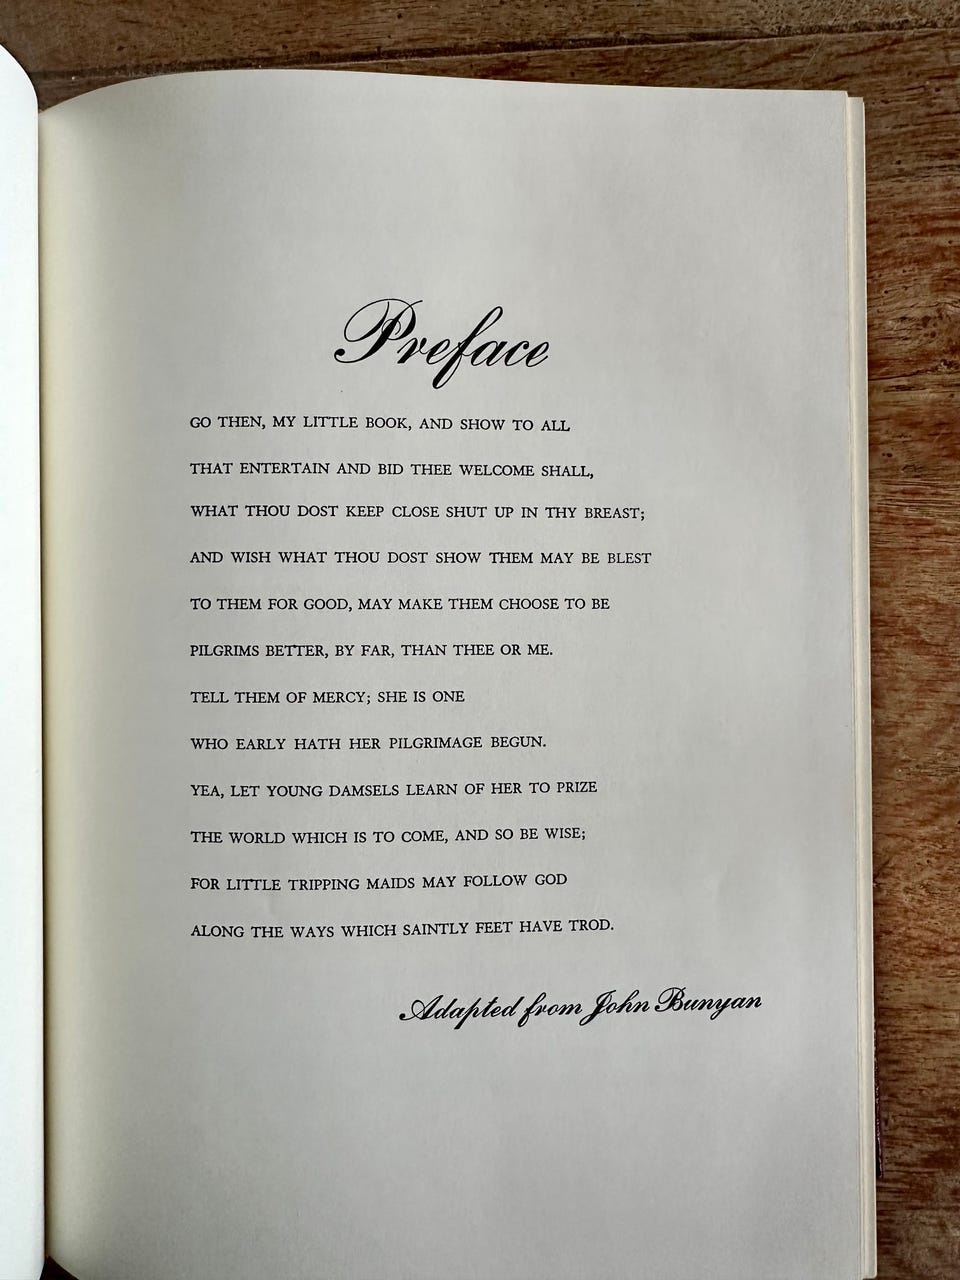 Preface
GO THEN, MY LITTLE BOOK, AND SHOW TO ALL
THAT ENTERTAIN AND BID THEE WELCOME SHALL,
WHAT THOU DOST KEEP CLOSE SHUT UP IN THY BREAST;
AND WISH WHAT THOU DOST SHOW THEM MAY BE BLEST
TO THEM FOR GOOD, MAY MAKE THEM CHOOSE TO BE
PILGRIMS BETTER, BY FAR, THAN THEE OR ME.
TELL THEM OF MERCY; SHE IS ONE
WHO EARLY HATH HER PILGRIMAGE BEGUN.
YEA, LET YOUNG DAMSELS LEARN OF HER TO PRIZE
THE WORLD WHICH IS TO COME, AND SO BE WISE;
FOR LITTLE TRIPPING MAIDS MAY FOLLOW GOD
ALONG THE WAYS WHICH SAINTLY FEET HAVE TROD.
Adapted from John Bunyan